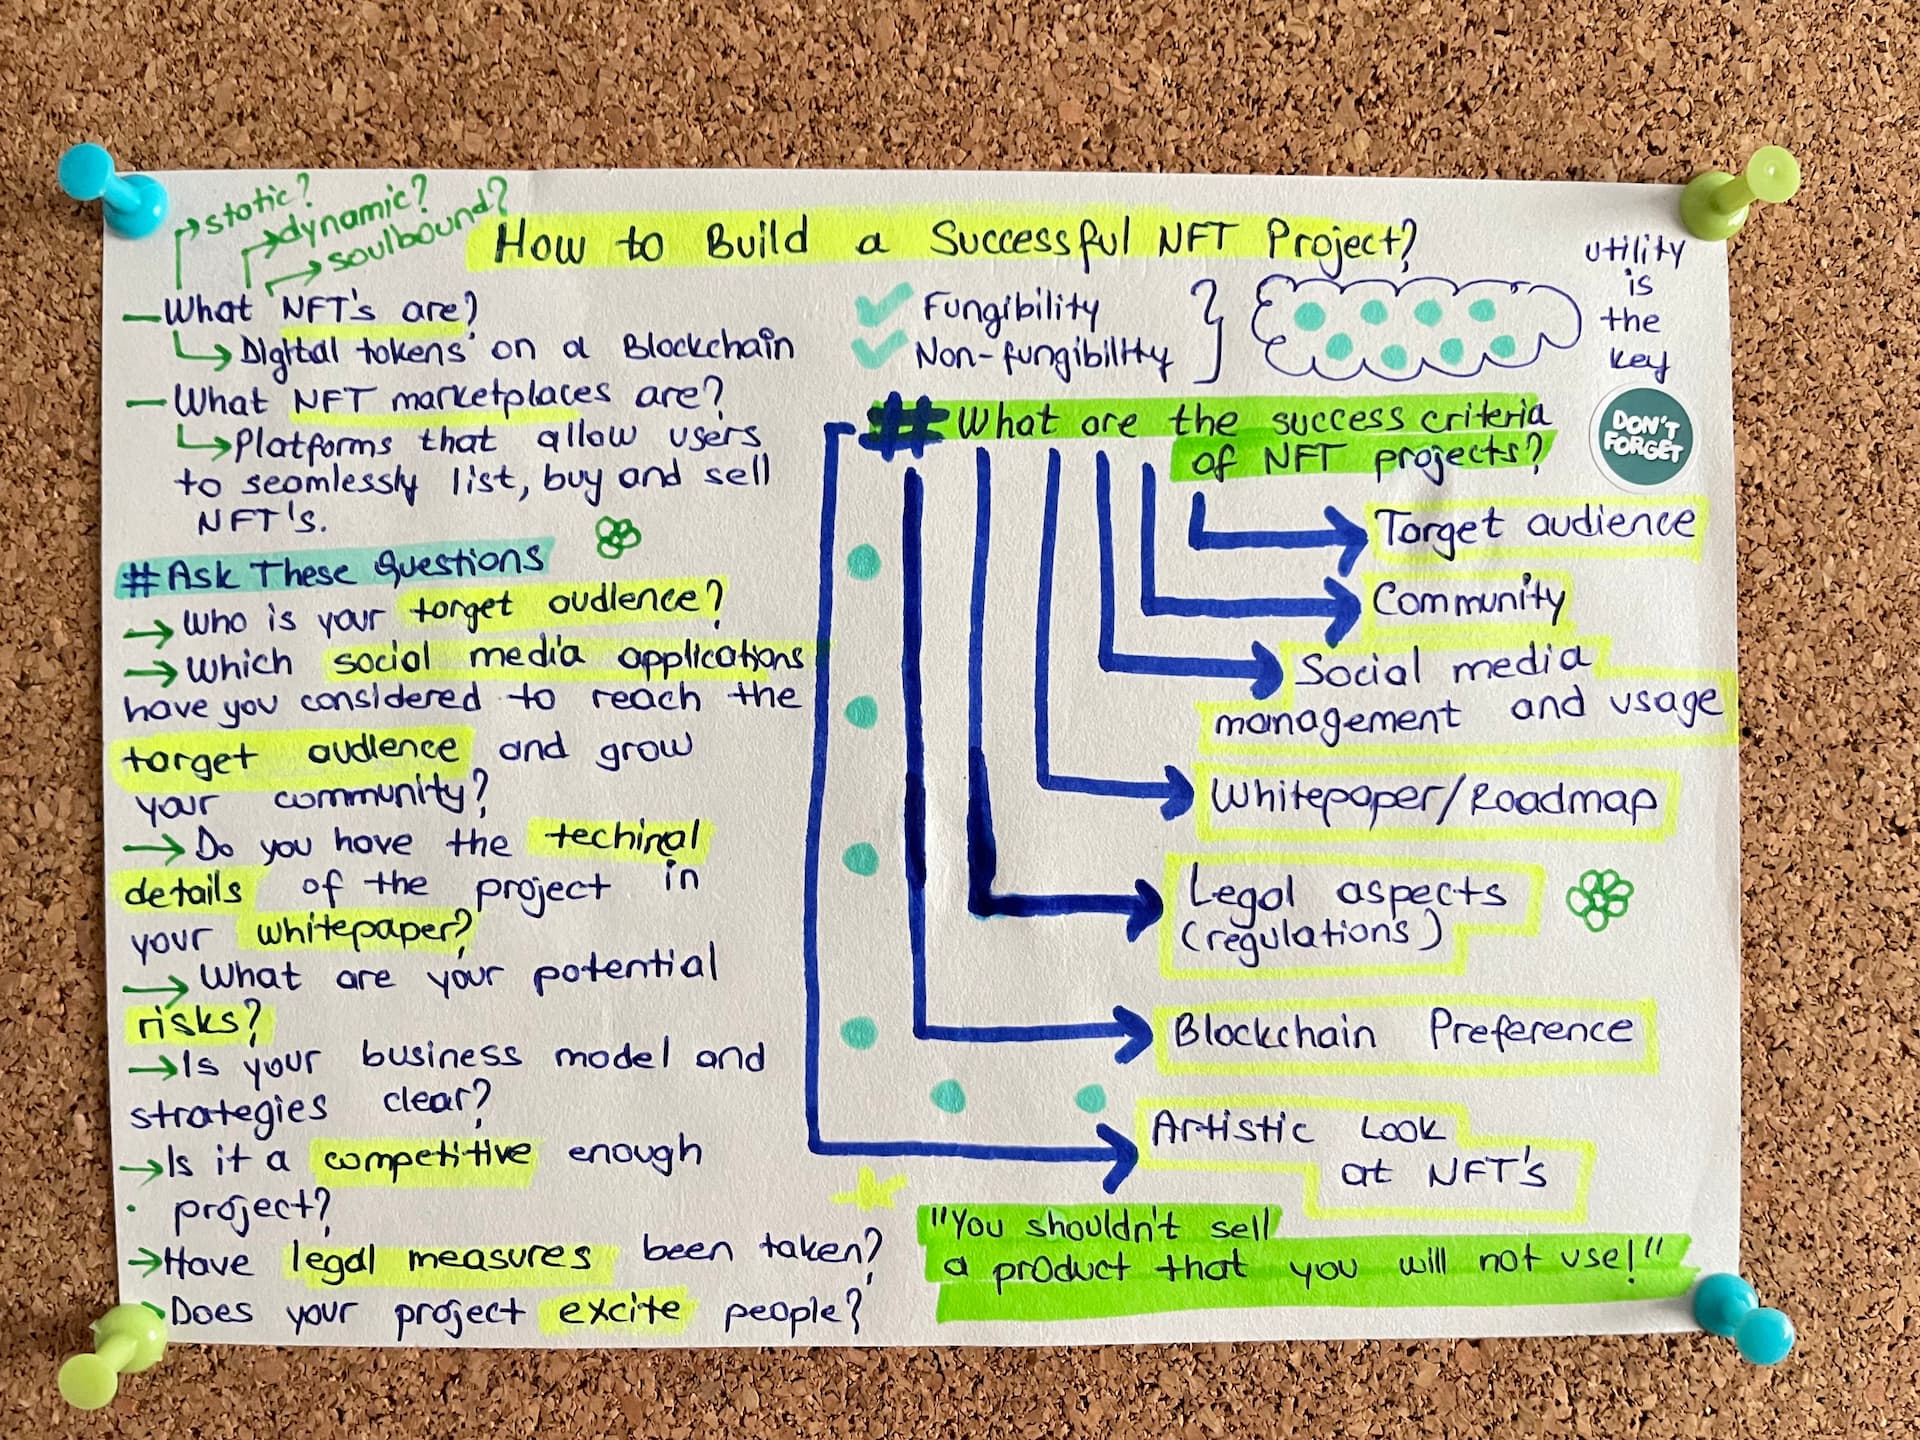 static?
dynamic?
soulbound?
How to Build a Successful NFT Project?
— What NFT's are?
Digital tokens on a Blockchain
— What NFT marketplaces are?
Platforms that allow users
to seamlessly list, buy and sell
NFT's.
# Ask These Questions
→ Who is your target audience?
→ Which social media applications
have you considered to reach the
target audience and grow
your community?
→ Do you have the techinal
details of the project in
your whitepaper?
→ What are your potential
risks?
→ Is your business model and
strategies clear?
→ Is it a competitive enough
project?
→ Have legal measures been taken?
Does your project excite people?
Fungibility
Non-fungibility
utility
is
the
key
DON'T
FORGET
# What are the success criteria
of NFT projects?
Target audience
Community
Social media
management and usage
Whitepaper/Roadmap
Legal aspects
(regulations)
Blockchain Preference
Artistic Look
at NFT's
"You shouldn't sell
a product that you will not use!"